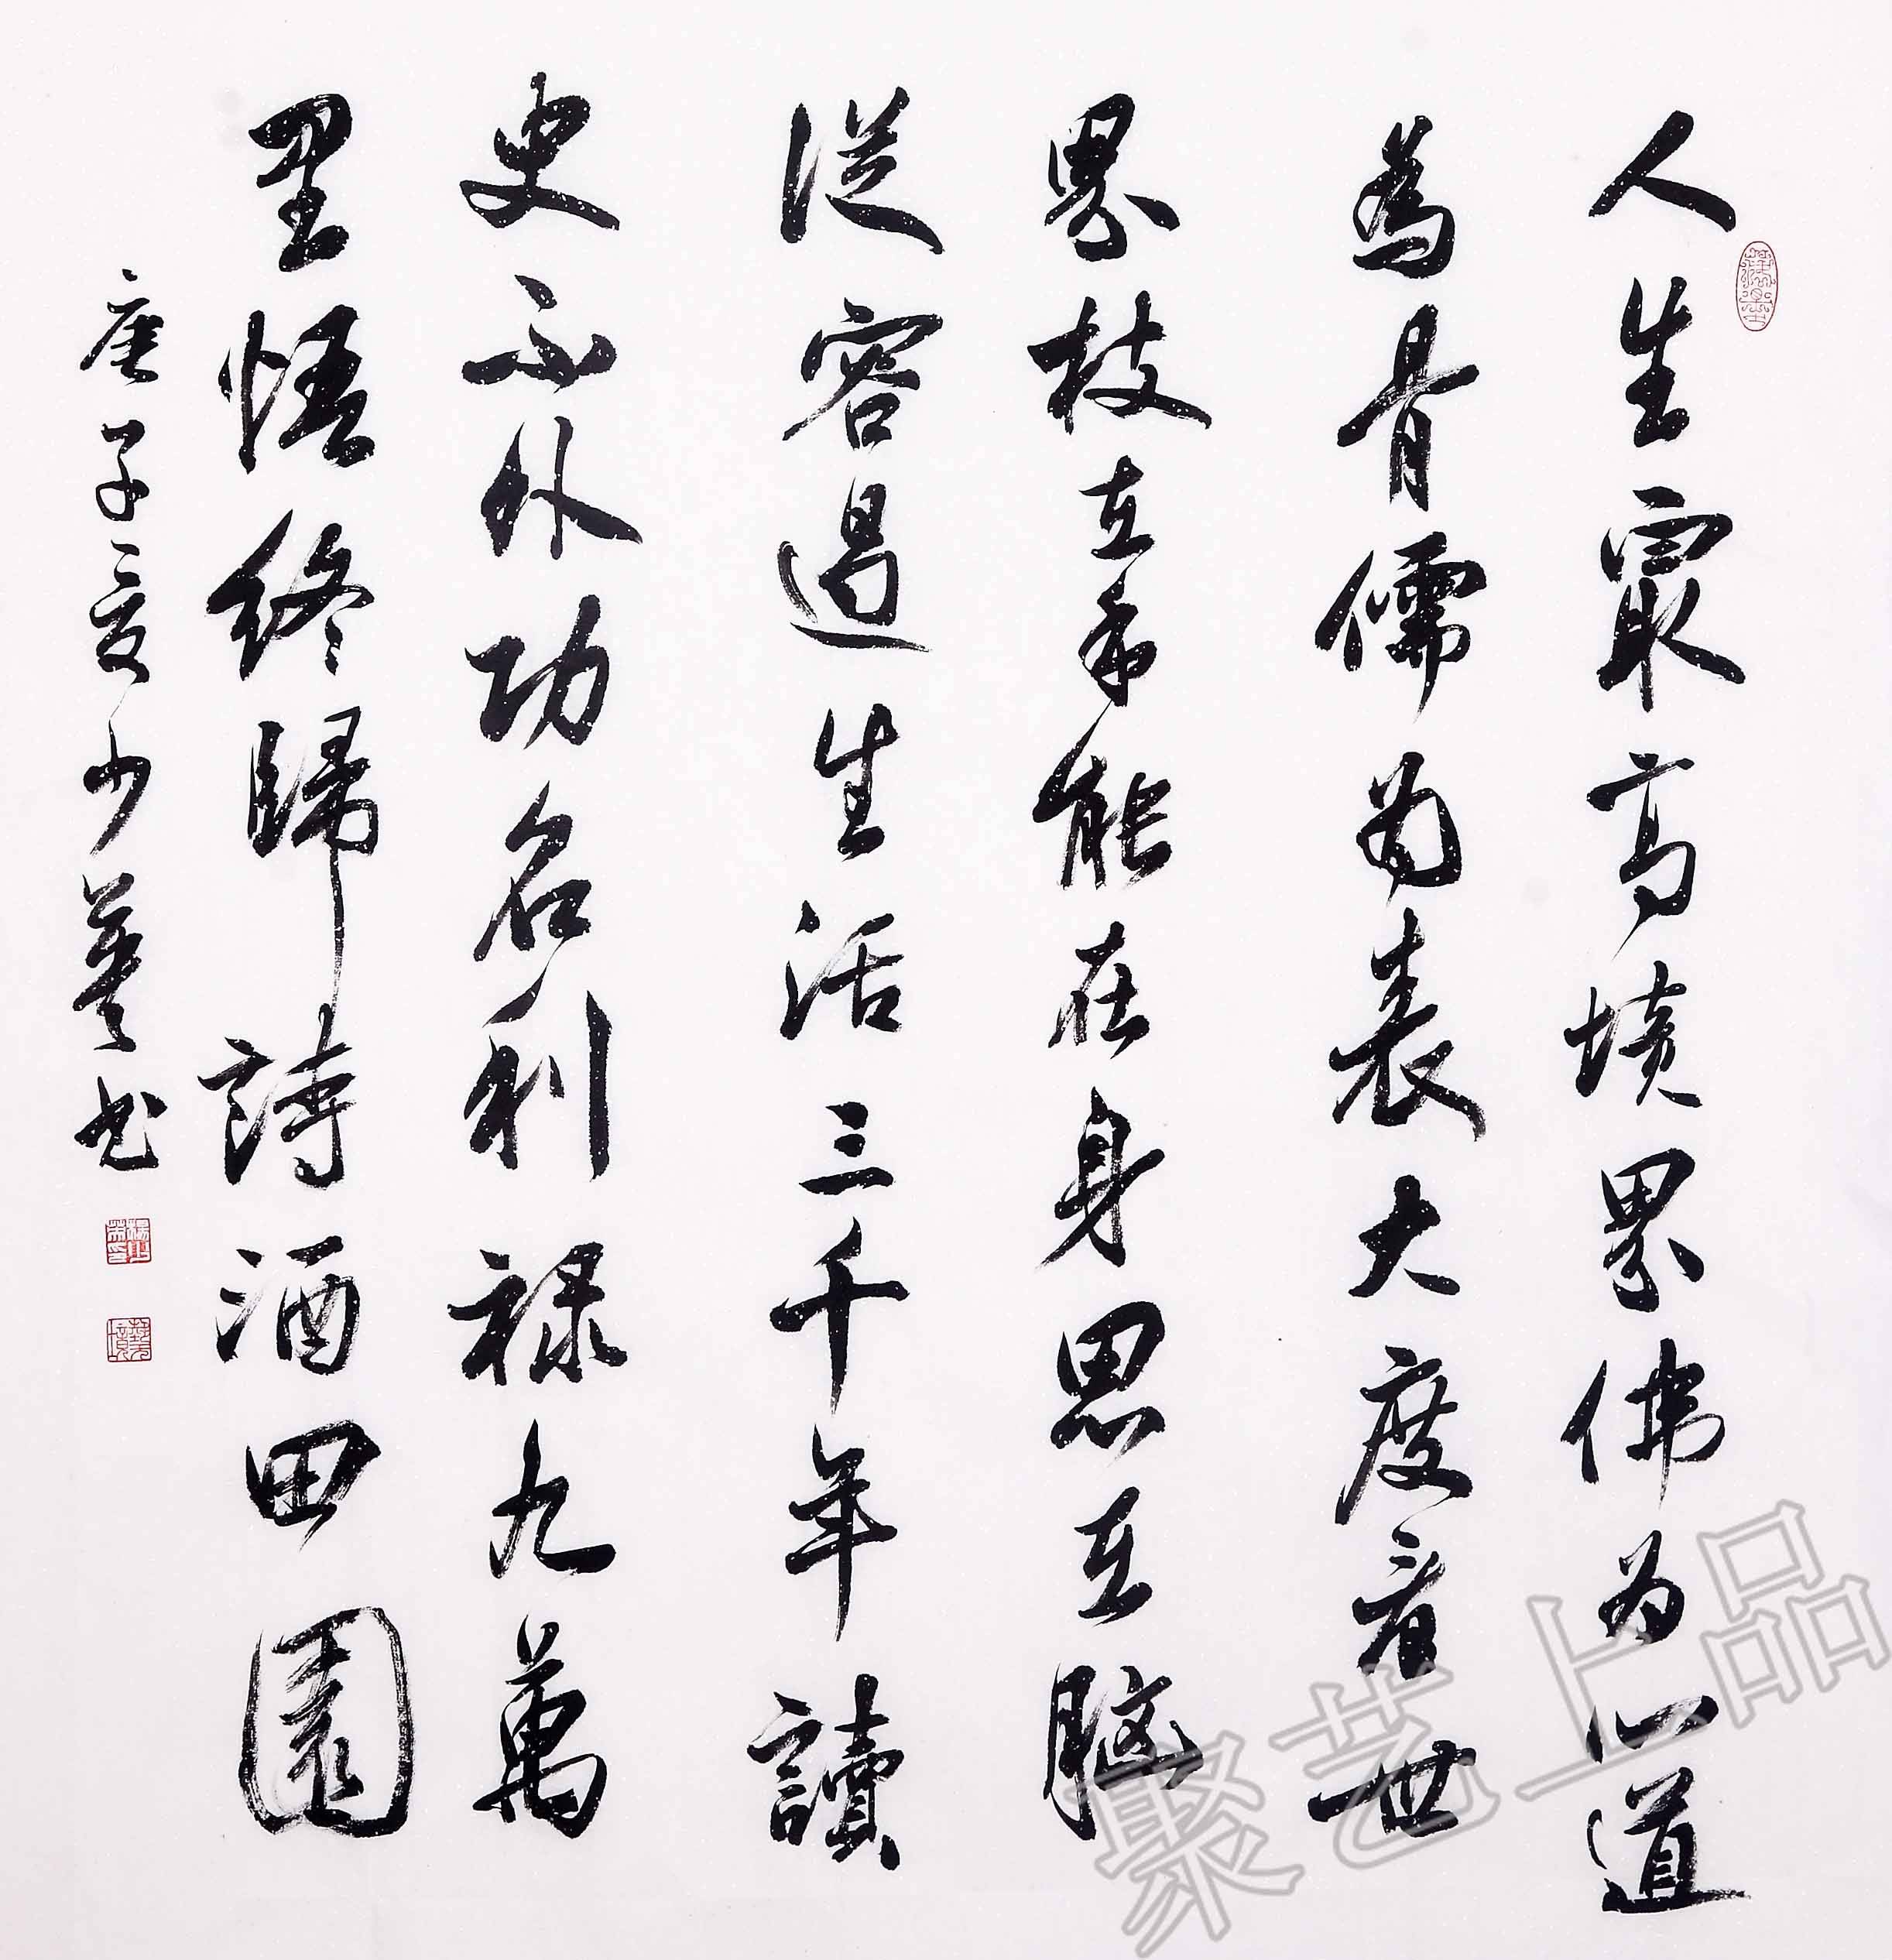 人生最高境界佛为心道
為骨儒为表大度看世
界技在手能在身思在脑
從容過生活三千年讀
史不外功名利禄九萬
里悟終歸詩酒田園
庚子夏少书
聚艺上品